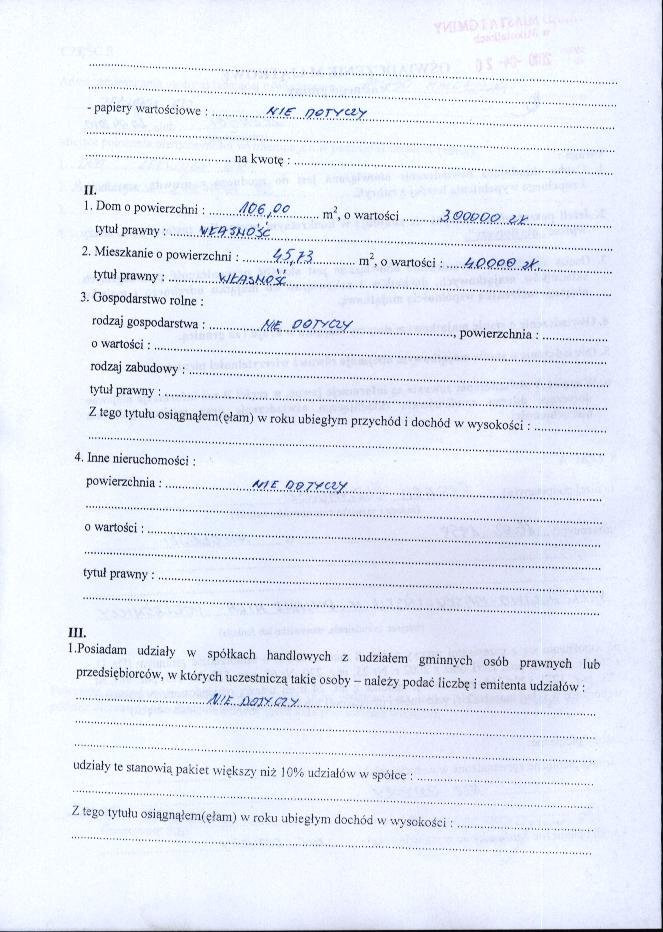 - papiery wartościowe : NIE DOTYCZY
na kwotę :
II.
1. Dom o powierzchni : 106,00 m², o wartości 300000 zł
tytuł prawny : WŁASNOŚĆ
2. Mieszkanie o powierzchni : 45,73 m², o wartości : 40000 zł.
tytuł prawny : WŁASNOŚĆ
3. Gospodarstwo rolne :
rodzaj gospodarstwa : NIE DOTYCZY, powierzchnia :
o wartości :
rodzaj zabudowy :
tytuł prawny :
Z tego tytułu osiągnąłem(ęłam) w roku ubiegłym przychód i dochód w wysokości :
4. Inne nieruchomości :
powierzchnia : NIE DOTYCZY
o wartości :
tytuł prawny :
III.
1.Posiadam udziały w spółkach handlowych z udziałem gminnych osób prawnych lub
przedsiębiorców, w których uczestniczą takie osoby – należy podać liczbę i emitenta udziałów :
NIE DOTYCZY
udziały te stanowią pakiet większy niż 10% udziałów w spółce :
Z tego tytułu osiągnąłem(ęłam) w roku ubiegłym dochód w wysokości :